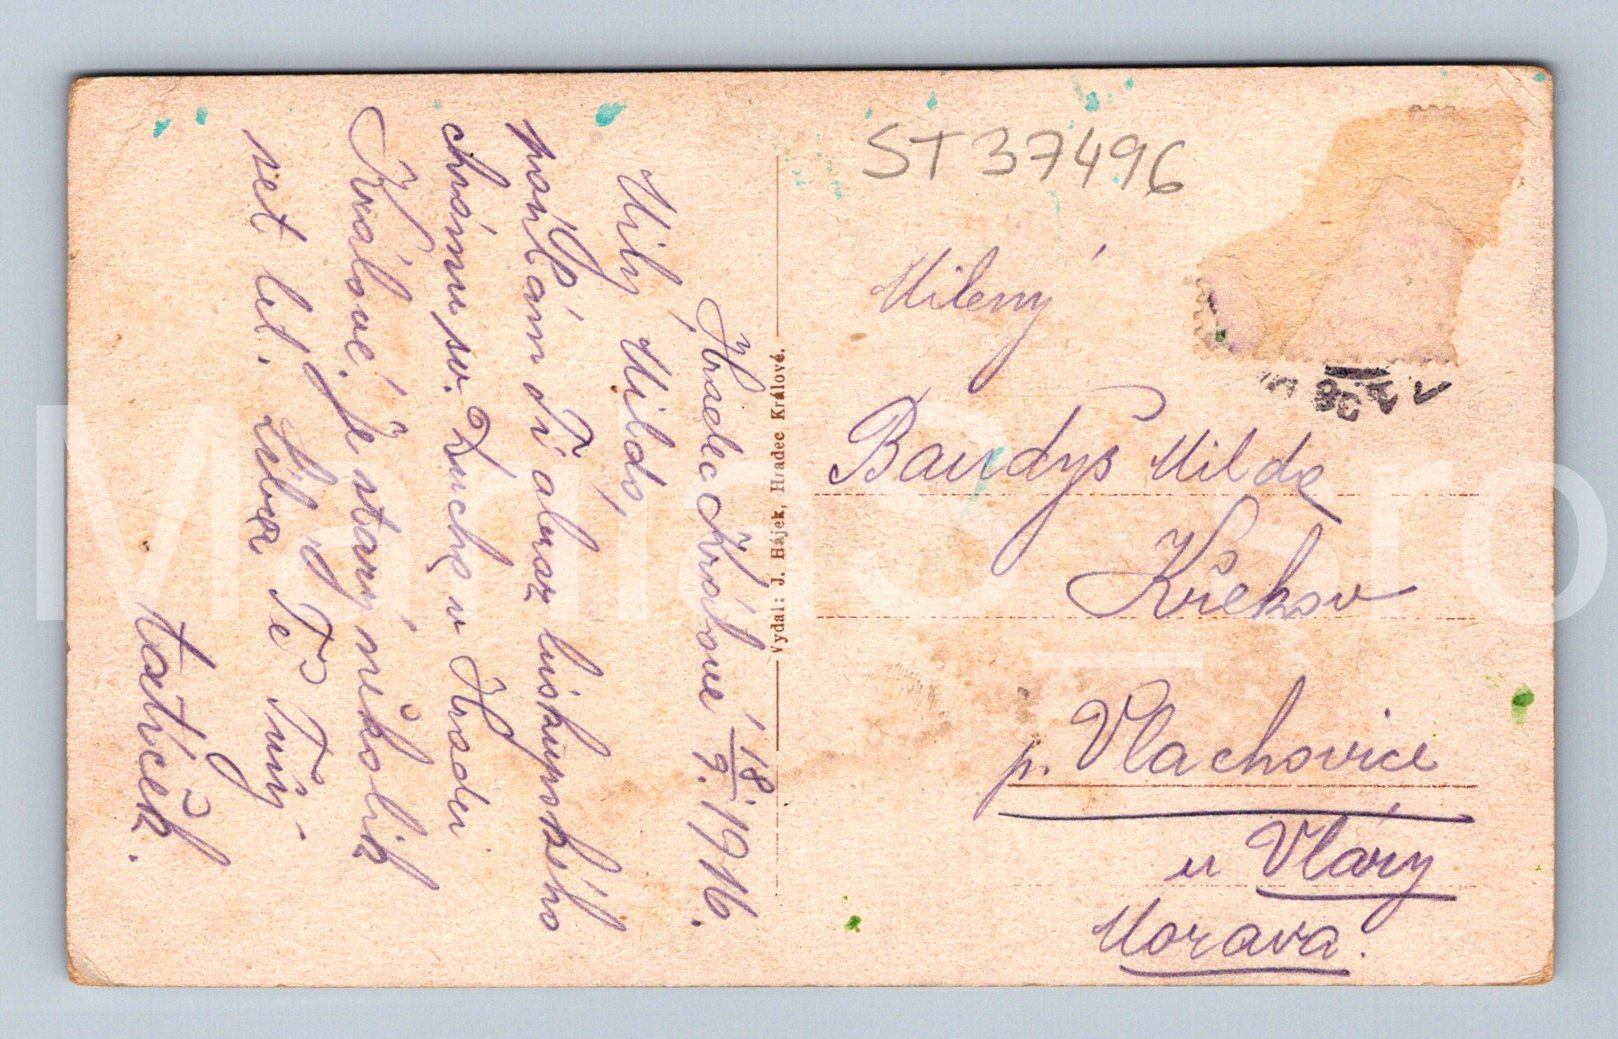 Hradec Králové 18/9. 1916.
Milý Mildo,
posílám Ti obraz biskupského
chrámu sv. Ducha v Hradci
Králové. Je starý několik
set let. Líbá Tě Tvůj
tatíček.
Vydal: J. Hájek, Hradec Králové.
ST 37496
Milený
Bandys Milda
Křekov
p. Vlachovice
u Vláry
Morava.
MariaS_sro